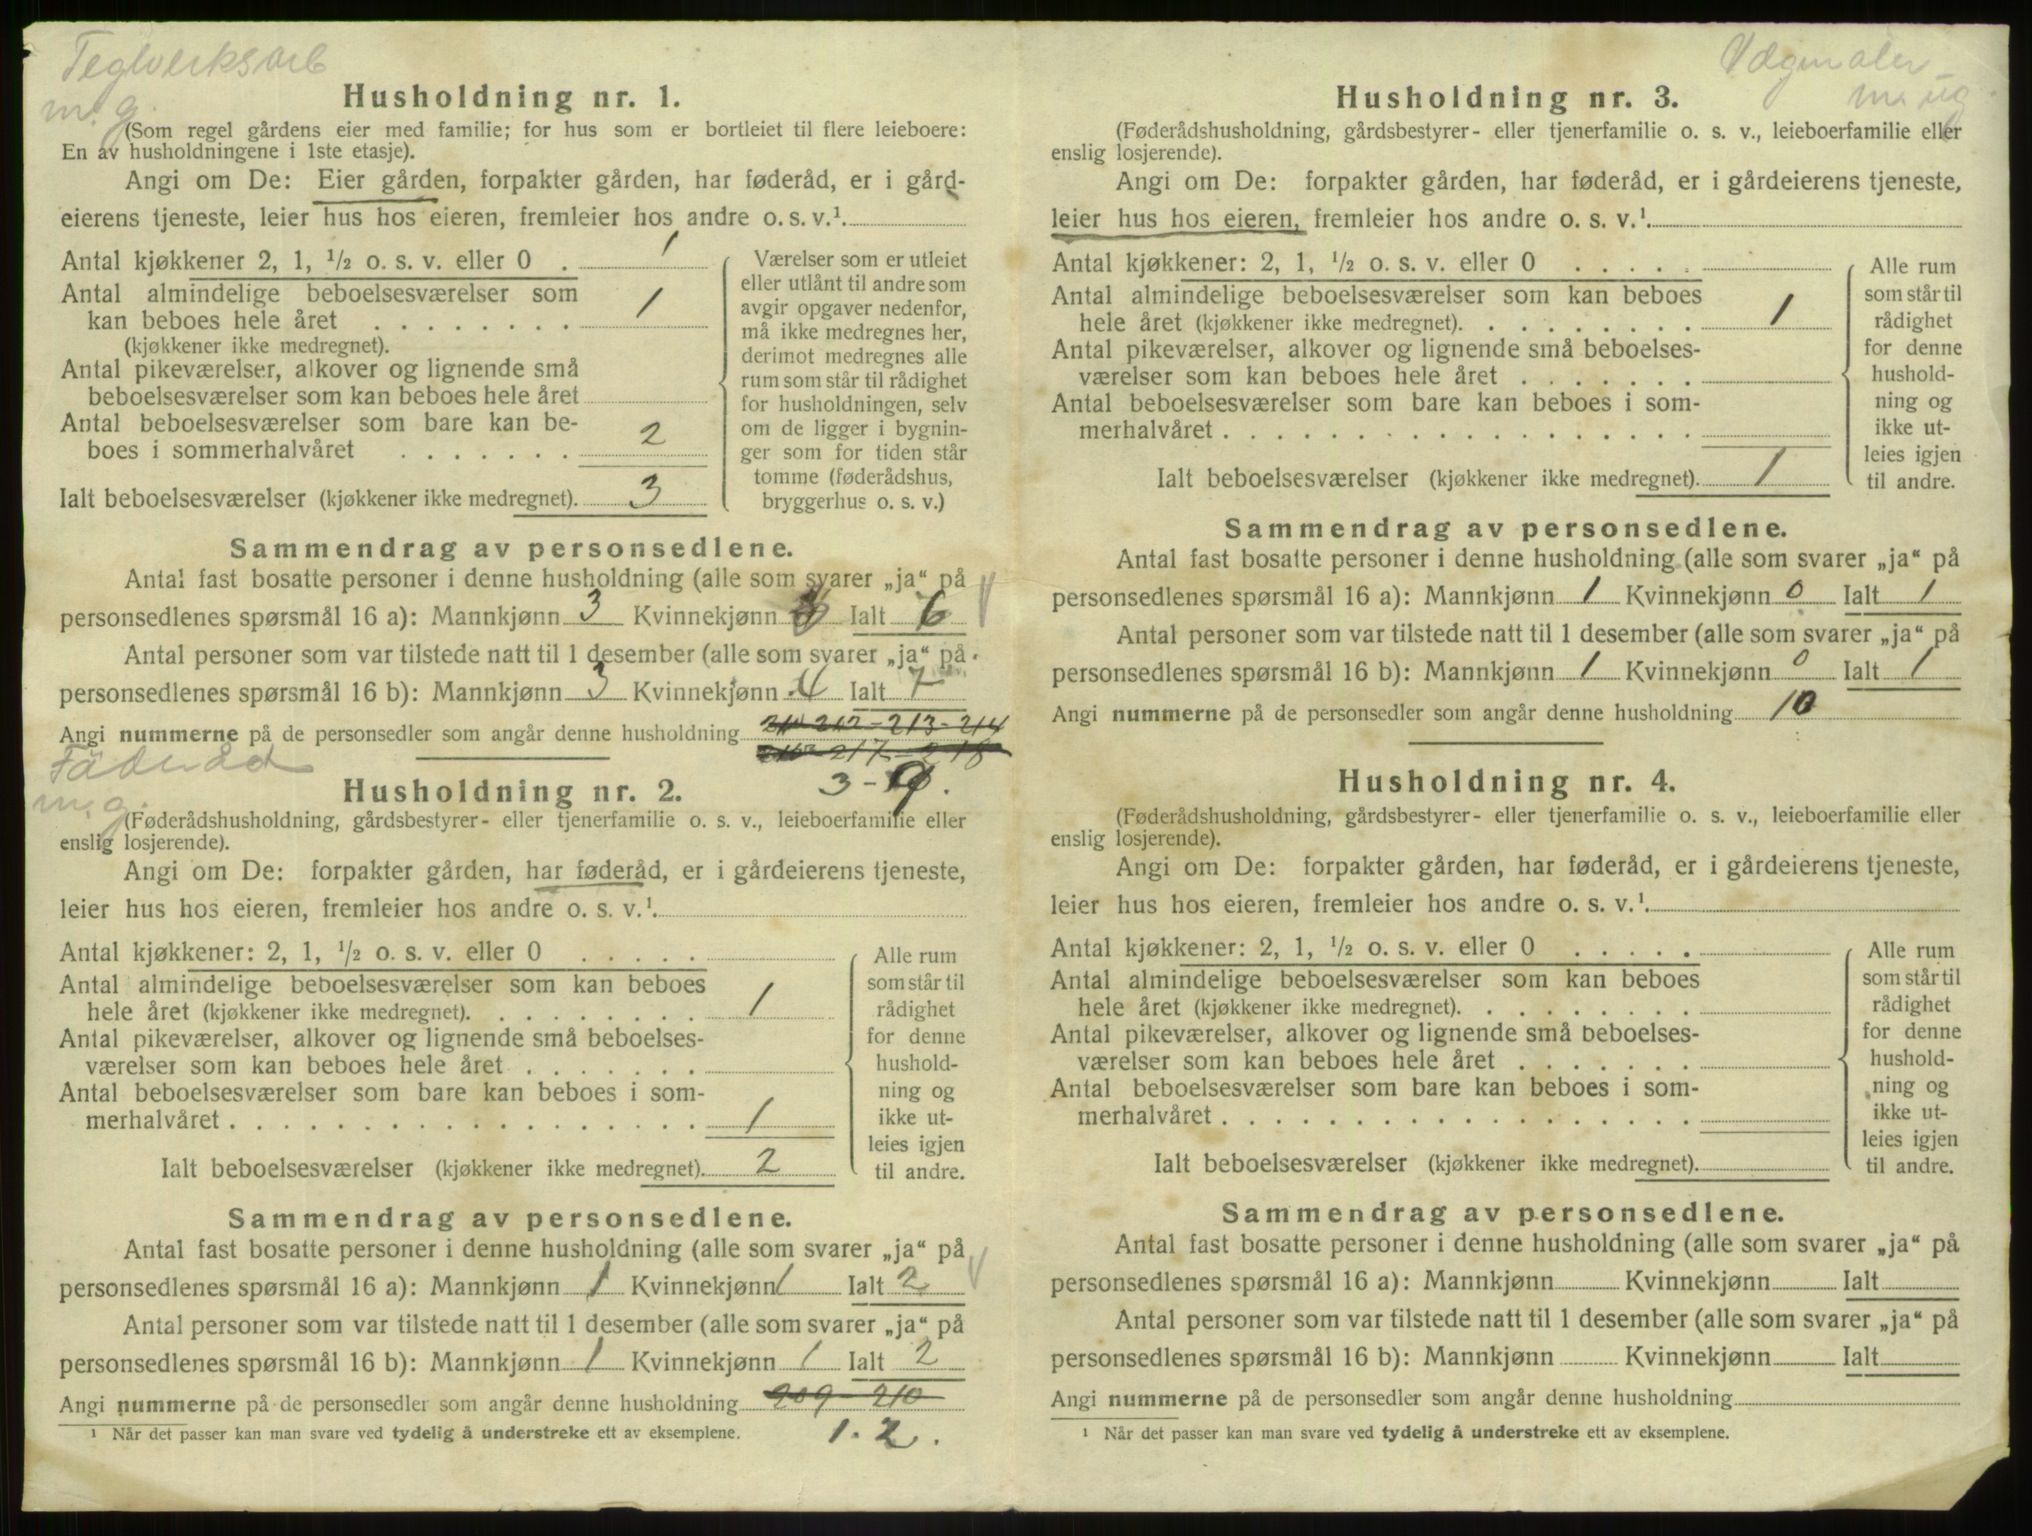 Teglverksarb
m. g.
Husholdning nr. 1.
(Som regel gårdens eier med familie; for hus som er bortleiet til flere leieboere:
En av husholdningene i 1ste etasje).
Angi om De: Eier gården, forpakter gården, har føderåd, er i gård-
eierens tjeneste, leier hus hos eieren, fremleier hos andre o. s. v.¹
Antal kjøkkener 2, 1, ½ o. s. v. eller 0 . 1
Antal almindelige beboelsesværelser som
kan beboes hele året . . . . . . . . 1
(kjøkkener ikke medregnet).
Antal pikeværelser, alkover og lignende små
beboelsesværelser som kan beboes hele året
Antal beboelsesværelser som bare kan be-
boes i sommerhalvåret . . . . . . . 2
Ialt beboelsesværelser (kjøkkener ikke medregnet). 3
Værelser som er utleiet
eller utlånt til andre som
avgir opgaver nedenfor,
må ikke medregnes her,
derimot medregnes alle
rum som står til rådighet
for husholdningen, selv
om de ligger i bygnin-
ger som for tiden står
tomme (føderådshus,
bryggerhus o. s. v.)
Sammendrag av personsedlene.
Antal fast bosatte personer i denne husholdning (alle som svarer „ja“ på
personsedlenes spørsmål 16 a): Mannkjønn 3 Kvinnekjønn Ialt 6
Antal personer som var tilstede natt til 1 desember (alle som svarer „ja“ på
personsedlenes spørsmål 16 b): Mannkjønn 3 Kvinnekjønn 4 Ialt 7
Angi nummerne på de personsedler som angår denne husholdning 212 - 213 - 214
217 - 218
3 - 9.
Föderåd
m. g.
Husholdning nr. 2.
(Føderådshusholdning, gårdsbestyrer- eller tjenerfamilie o. s. v., leieboerfamilie eller
enslig losjerende).
Angi om De: forpakter gården, har føderåd, er i gårdeierens tjeneste,
leier hus hos eieren, fremleier hos andre o. s. v.¹
Antal kjøkkener: 2, 1, ½ o. s. v. eller 0 . . . . .
Antal almindelige beboelsesværelser som kan beboes
hele året (kjøkkener ikke medregnet). . . . . . . . . 1
Antal pikeværelser, alkover og lignende små beboelses-
værelser som kan beboes hele året . . . . . . .
Antal beboelsesværelser som bare kan beboes i som-
merhalvåret . . . . . . . . . . . . . . . . . . 1
Ialt beboelsesværelser (kjøkkener ikke medregnet). 2
Alle rum
som står til
rådighet
for denne
hushold-
ning og
ikke ut-
leies igjen
til andre.
Sammendrag av personsedlene.
Antal fast bosatte personer i denne husholdning (alle som svarer „ja“ på
personsedlenes spørsmål 16 a): Mannkjønn 1 Kvinnekjønn 1 Ialt 2
Antal personer som var tilstede natt til 1 desember (alle som svarer „ja“ på
personsedlenes spørsmål 16 b): Mannkjønn 1 Kvinnekjønn 1 Ialt 2
Angi nummerne på de personsedler som angår denne husholdning 209 - 210
1. 2.
¹ Når det passer kan man svare ved tydelig å understreke ett av eksemplene.
Vægmaler
m. ug.
Husholdning nr. 3.
(Føderådshusholdning, gårdsbestyrer- eller tjenerfamilie o. s. v., leieboerfamilie eller
enslig losjerende).
Angi om De: forpakter gården, har føderåd, er i gårdeierens tjeneste,
leier hus hos eieren, fremleier hos andre o. s. v.¹
Antal kjøkkener: 2, 1, ½ o. s. v. eller 0 . . . . .
Antal almindelige beboelsesværelser som kan beboes
hele året (kjøkkener ikke medregnet). . . . . . . . . 1
Antal pikeværelser, alkover og lignende små beboelses-
værelser som kan beboes hele året . . . . . . .
Antal beboelsesværelser som bare kan beboes i som-
merhalvåret . . . . . . . . . . . . . . . . . .
Ialt beboelsesværelser (kjøkkener ikke medregnet). 1
Alle rum
som står til
rådighet
for denne
hushold-
ning og
ikke ut-
leies igjen
til andre.
Sammendrag av personsedlene.
Antal fast bosatte personer i denne husholdning (alle som svarer „ja“ på
personsedlenes spørsmål 16 a): Mannkjønn 1 Kvinnekjønn 0 Ialt 1
Antal personer som var tilstede natt til 1 desember (alle som svarer „ja“ på
personsedlenes spørsmål 16 b): Mannkjønn 1 Kvinnekjønn 0 Ialt 1
Angi nummerne på de personsedler som angår denne husholdning 10
Husholdning nr. 4.
(Føderådshusholdning, gårdsbestyrer- eller tjenerfamilie o. s. v., leieboerfamilie eller
enslig losjerende).
Angi om De: forpakter gården, har føderåd, er i gårdeierens tjeneste,
leier hus hos eieren, fremleier hos andre o. s. v.¹
Antal kjøkkener: 2, 1, ½ o. s. v. eller 0 . . . . .
Antal almindelige beboelsesværelser som kan beboes
hele året (kjøkkener ikke medregnet). . . . . . . . .
Antal pikeværelser, alkover og lignende små beboelses-
værelser som kan beboes hele året . . . . . . .
Antal beboelsesværelser som bare kan beboes i som-
merhalvåret . . . . . . . . . . . . . . . . . .
Ialt beboelsesværelser (kjøkkener ikke medregnet).
Alle rum
som står til
rådighet
for denne
hushold-
ning og
ikke ut-
leies igjen
til andre.
Sammendrag av personsedlene.
Antal fast bosatte personer i denne husholdning (alle som svarer „ja“ på
personsedlenes spørsmål 16 a): Mannkjønn Kvinnekjønn Ialt
Antal personer som var tilstede natt til 1 desember (alle som svarer „ja“ på
personsedlenes spørsmål 16 b): Mannkjønn Kvinnekjønn Ialt
Angi nummerne på de personsedler som angår denne husholdning
¹ Når det passer kan man svare ved tydelig å understreke ett av eksemplene.